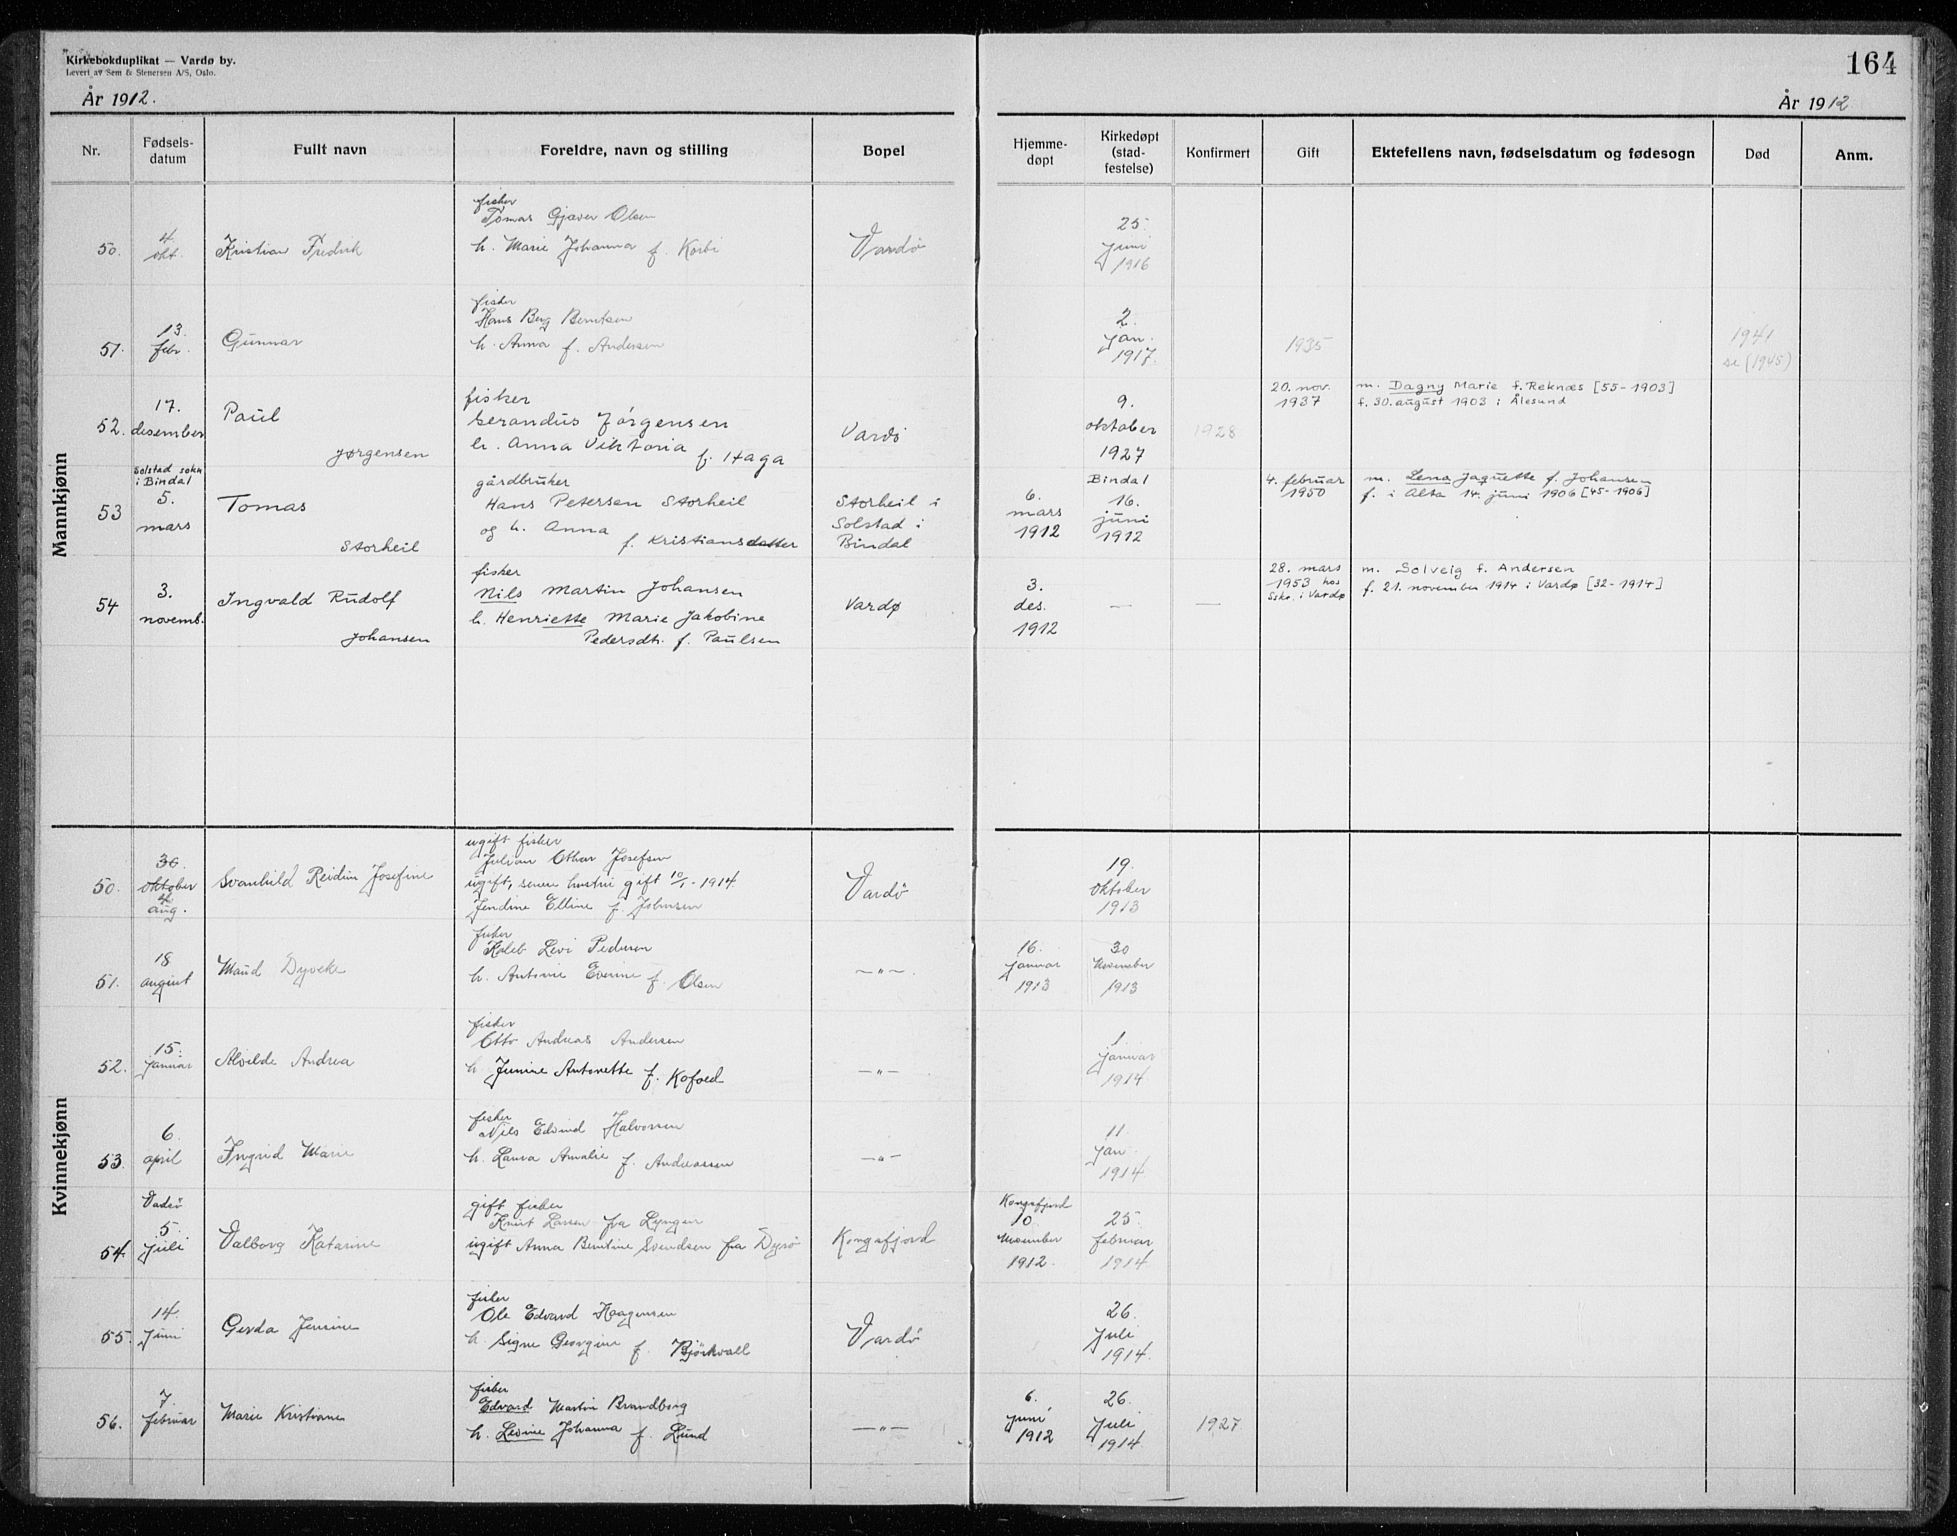 Kirkebokduplikat — Vardø by.
Levert av Sem & Stenersen A/S, Oslo.
164
År 1912.
År 1912
Nr.
Fødsels-
datum
Fullt navn
Foreldre, navn og stilling
Bopel
Hjemme-
døpt
Kirkedøpt
(stad-
festelse)
Konfirmert
Gift
Ektefellens navn, fødselsdatum og fødesogn
Død
Anm.
Mannkjønn
50.
4.
okt.
Kristian Fredrik
fisker
Tomas Gjæver Olsen
h. Marie Johanna f. Korbi
Vardö
25.
juni
1916
51.
13.
febr.
Gunnar
fisker
Hans Berg Berntsen
h. Anna f. Andersen
2.
jan.
1917.
1935
1941
se (1945)
52.
17.
desember
Paul
Jørgensen
fisker
Gerandus Jörgensen
h. Anna Viktoria f. Haga
Vardö
9.
oktober
1927
1928
20. nov.
1937
m. Dagny Marie f. Reknæs [55-1903]
f. 30. august 1903 i Ålesund
53
Solstad sokn
i Bindal
5.
mars
Tomas
Storheil
gårdbruker
Hans Petersen Storheil
og h. Anna
f. Kristiansdatter
Storheil i
Solstad i
Bindal
6.
mars
1912
Bindal
16.
juni
1912
4. februar
1950
m. Lena Jaquette f. Johansen
f. i Alta 14. juni 1906 [45-1906]
54
3.
novemb.
Ingvald Rudolf
Johansen
fisker
Nils Martin Johansen
h. Henriette Marie Jakobine
Pedersdtr. f. Paulsen
Vardø
3.
des.
1912
—
—
28. mars
1953 hos
Sskr. i Vardø
m. Solveig f. Andersen
f. 21. november 1914 i Vardø [32-1914]
Kvinnekjønn
50.
30.
oktober
4
aug.
Svanhild Reidun Josefine
ugift fisker
Julian Othar Josefsen
ugift, senere hustru gift 10/1-1914.
Jendine Elline f. Johnsen
Vardö
19.
oktober
1913
51.
18
august
Maud Dyveke
fisker
Kaleb Levi Pedersen
h. Antonie Everine f. Olsen
—"—
16.
januar
1913
30
november
1913
52.
15.
januar
Alvilde Andrea
fisker
Otto Andreas Andersen
h Junine Antonette f. Kofoed
—"—
1.
januar
1914
53.
6.
april
Ingrid Marie
fisker
Nils Edvind Halvorsen
h. Laura Amalie f. Andreassen
—"—
11.
jan.
1914
54.
Vadsö
5.
juli
Valborg Katarine
gift fisker
Knut Larsen fra Lyngen
ugift Anna Berntine Svendsen fra Dyrö
Kongsfjord
Kongsfjord
10.
november
1912.
25.
februar
1914.
55.
14.
juni
Gerda Jensine
fisker
Ole Edvard Haagensen
h. Signe Georgine f. Björkvall
Vardö
26.
juli
1914.
56.
7.
februar
Marie Kristiane
fisker
Edvard Martin Brandborg
h. Levine Johanna f. Lund
—"—
6.
juni
1912
26.
juli
1914
1927